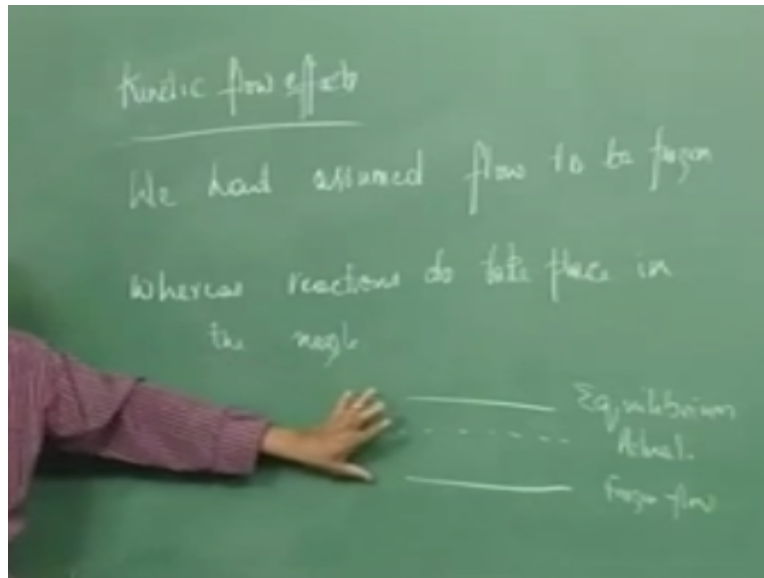 Kinetic flow effects
We had assumed flow to be frozen
whereas reactions do take place in
the nozzle
Equilibrium
Actual.
Frozen flow